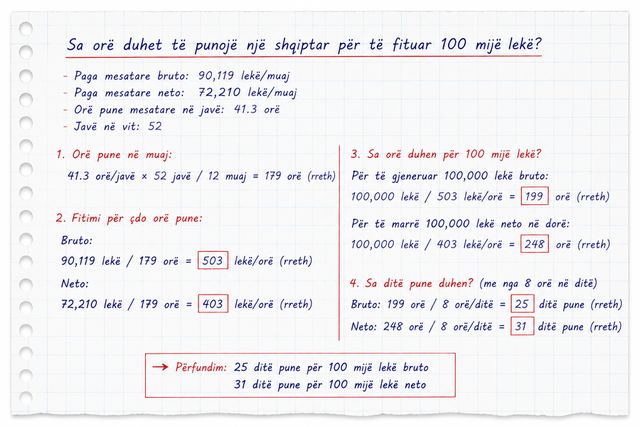 Sa orë duhet të punojë një shqiptar për të fituar 100 mijë lekë?
- Paga mesatare bruto: 90,119 lekë/muaj
- Paga mesatare neto: 72,210 lekë/muaj
- Orë pune mesatare në javë: 41.3 orë
- Javë në vit: 52
1. Orë pune në muaj:
41.3 orë/javë × 52 javë / 12 muaj = 179 orë (rreth)
2. Fitimi për çdo orë pune:
Bruto:
90,119 lekë / 179 orë = 503 lekë/orë (rreth)
Neto:
72,210 lekë / 179 orë = 403 lekë/orë (rreth)
3. Sa orë duhen për 100 mijë lekë?
Për të gjeneruar 100,000 lekë bruto:
100,000 lekë / 503 lekë/orë = 199 orë (rreth)
Për të marrë 100,000 lekë neto në dorë:
100,000 lekë / 403 lekë/orë = 248 orë (rreth)
4. Sa ditë pune duhen? (me nga 8 orë në ditë)
Bruto: 199 orë / 8 orë/ditë = 25 ditë pune (rreth)
Neto: 248 orë / 8 orë/ditë = 31 ditë pune (rreth)
→ Përfundim: 25 ditë pune për 100 mijë lekë bruto
31 ditë pune për 100 mijë lekë neto